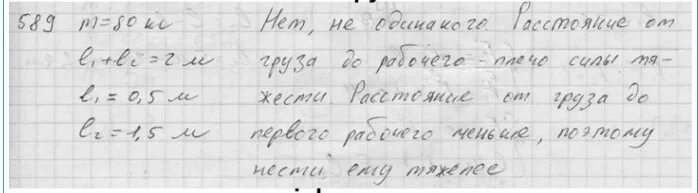 589 m=80 кг Нет, не одинаково. Расстояние от
l₁+l₂=2 м груза до рабочего - плечо силы тя-
l₁=0,5 м жести. Расстояние от груза до
l₂=1,5 м первого рабочего меньше, поэтому
нести ему тяжелее